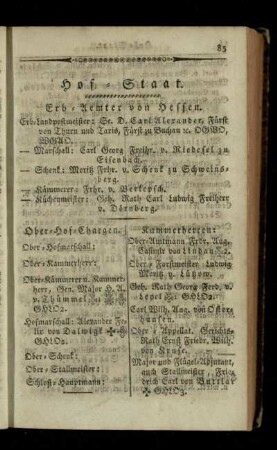 85
Hof-Staat.
Erb-Aemter von Hessen.
Erb-Landpostmeister: Sr. D. Carl Alexander, Fürst
von Thurn und Taxis, Fürst zu Buchau ꝛc. OGVO,
— Marschall: Carl Georg Freihr. v. Riedesel zu
Eisenbach.
— Schenk: Moritz Frhr. v. Schenk zu Schweins-
berg.
— Kämmerer: Frhr. v. Berlepsch.
— Küchenmeister: Geh. Rath Carl Ludwig Freiherr
v. Dörnberg.
Ober-Hof-Chargen.
Ober-Hofmarschall:
Ober-Kammerherr:
Ober-Kämmerer u. Kammer-
herr, Gen. Major H. A.
v. Thümmel
GHLO2.
Hofmarschall: Alexander Fe-
lix von Dalwigk
GHLO2.
Ober-Schenk:
Ober-Stallmeister:
Schloß-Hauptmann:
Kammerherren:
Ober-Amtmann Frdr. Aug.
von Lindau
Ober-Forstmeister Ludwig
Moritz v. Lützow.
Geh. Rath Georg Ferd. v.
Lepel GHLO2.
Carl Wilh. Aug. von Oster-
hausen.
Ober-Appellat. Gerichts-
Rath Ernst Friedr. Wilh.
von
Major und Flügel-Adjutant,
auch Stallmeister, Frie-
drich Carl von Buttlar
GHLO3.